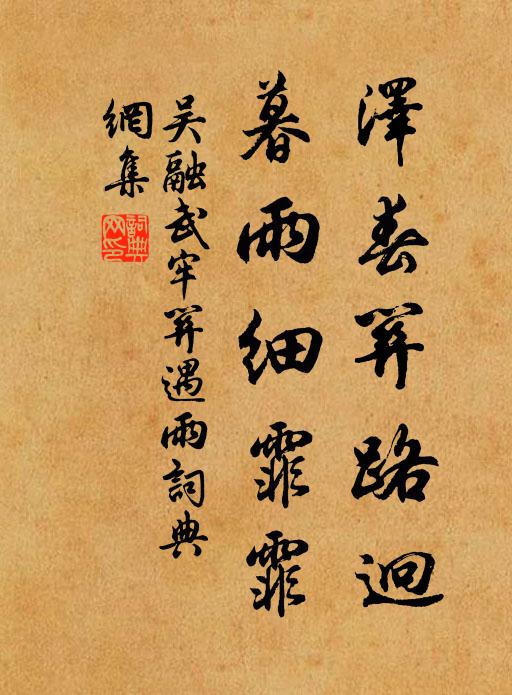 澤春關路迥
暮雨細霏霏
吳融武牢關遇雨詞典
網集
詞典
网印